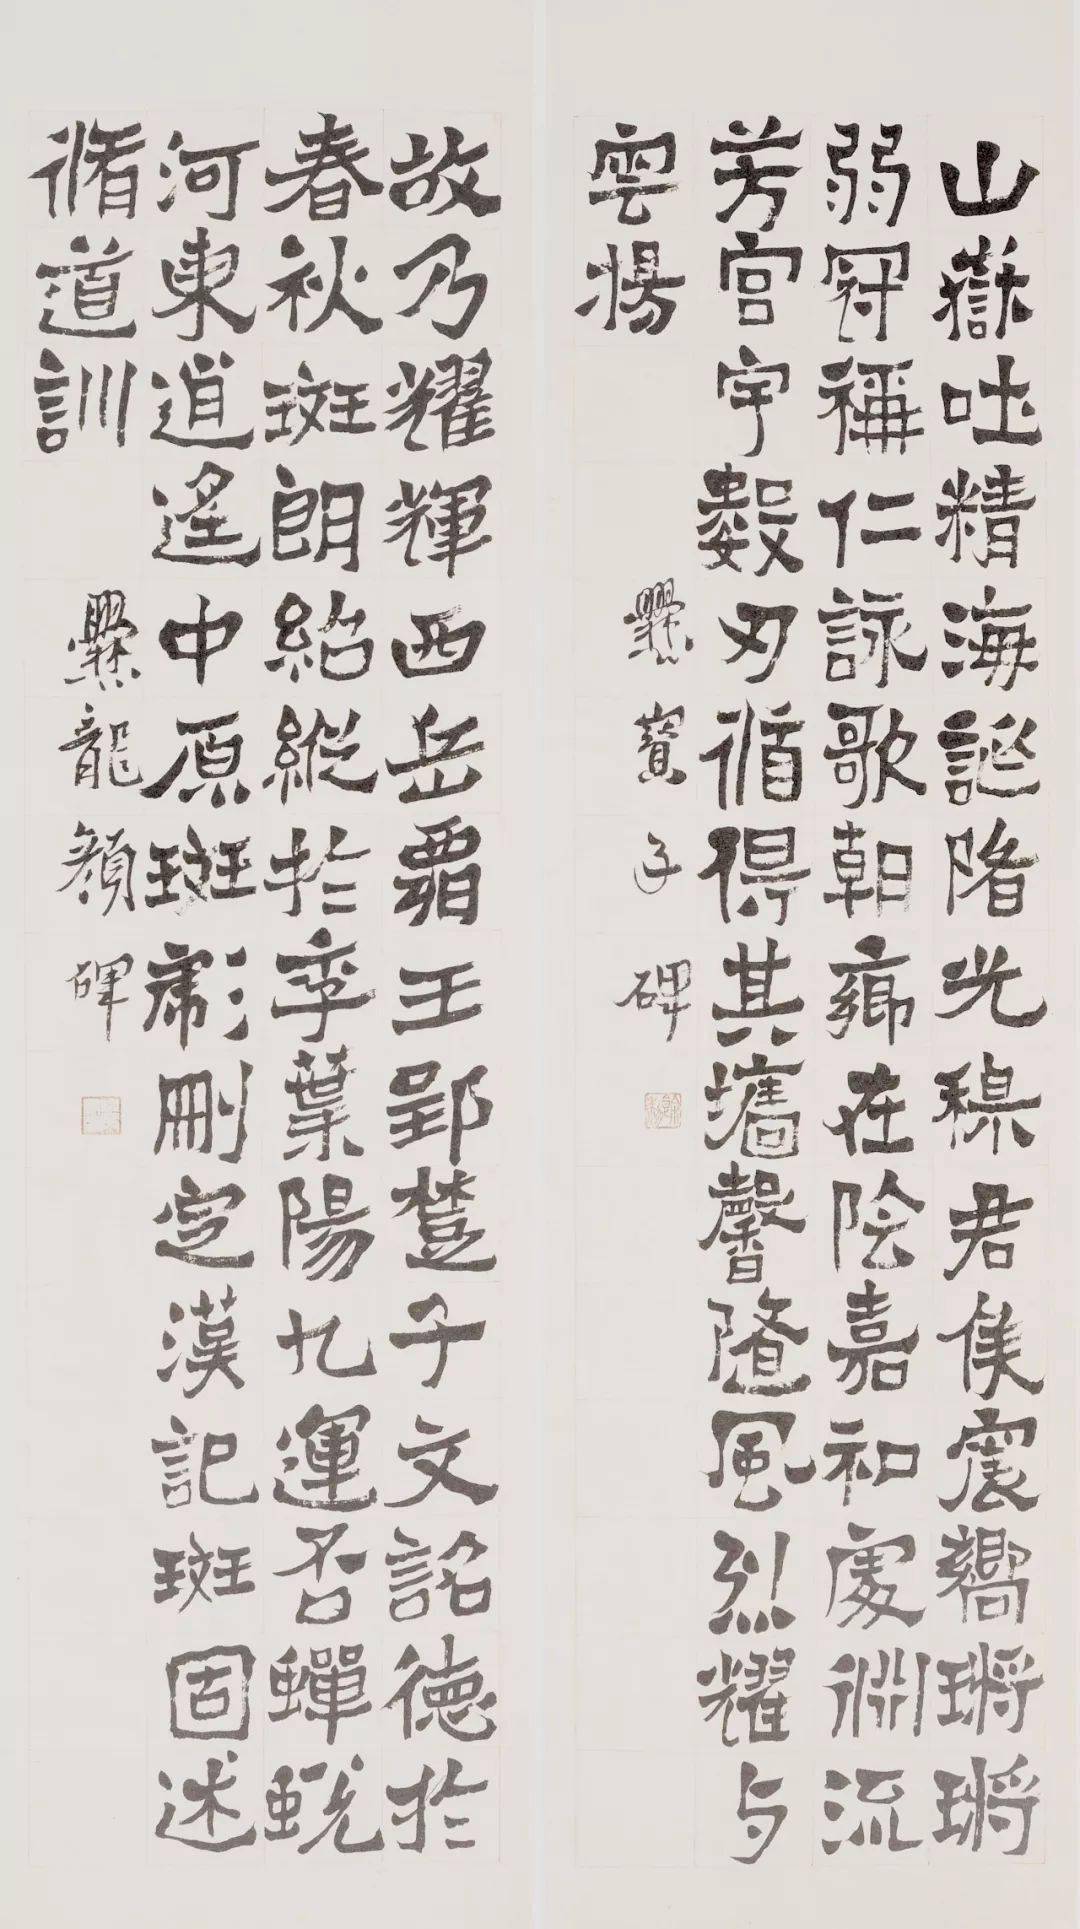 山嶽吐精海誕陏光穆君侯震嚮鏘鏘
弱冠稱仁詠歌朝鄉在陰嘉和處淵流
芳宮宇數刃循得其墻馨隨風烈耀与
雲揚
爨寳子碑
故乃耀輝西岳霸王郢楚子文詺德於
春秋斑朗紹縱於季葉陽九運否蟬蛻
河東逍遙中原斑彪刪定漢記斑固述
脩道訓
爨龍顏碑